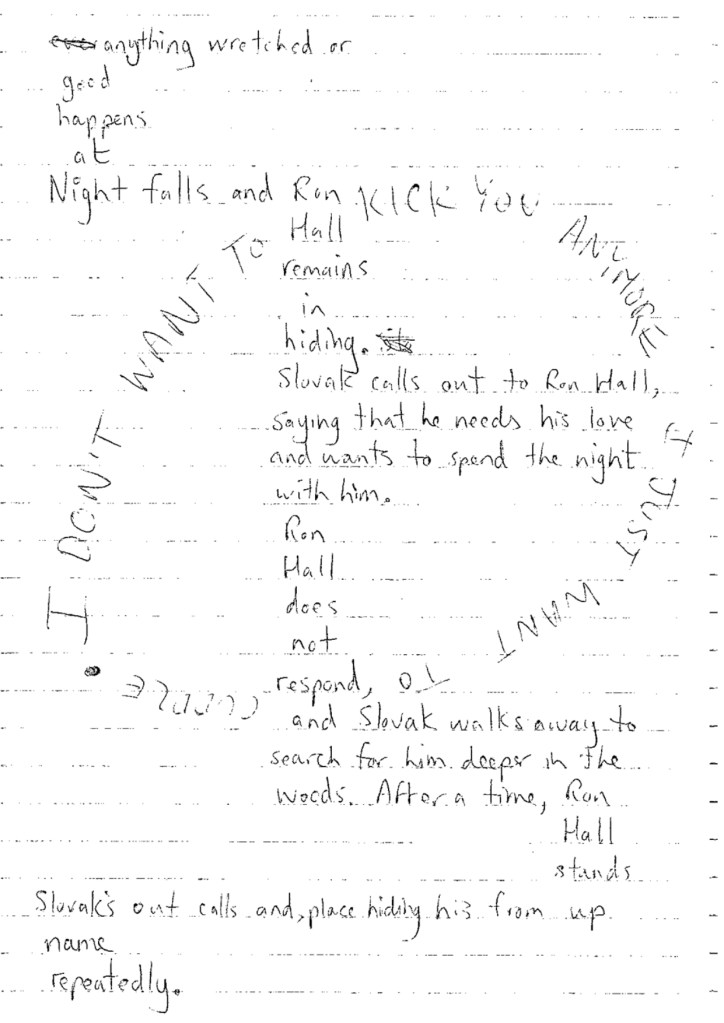 anything wretched or
good
happens
at
Night falls and Ron
Hall
remains
in
hiding.
Slovak calls out to Ron Hall,
saying that he needs his love
and wants to spend the night
with him.
Ron
Hall
does
not
respond,
and Slovak walks away to
search for him deeper in the
woods. After a time, Ron
Hall
stands
Slovak's out calls and, place hiding his from up
name
repeatedly.
I DON'T WANT TO KICK YOU ANYMORE I JUST WANT TO CUDDLE.